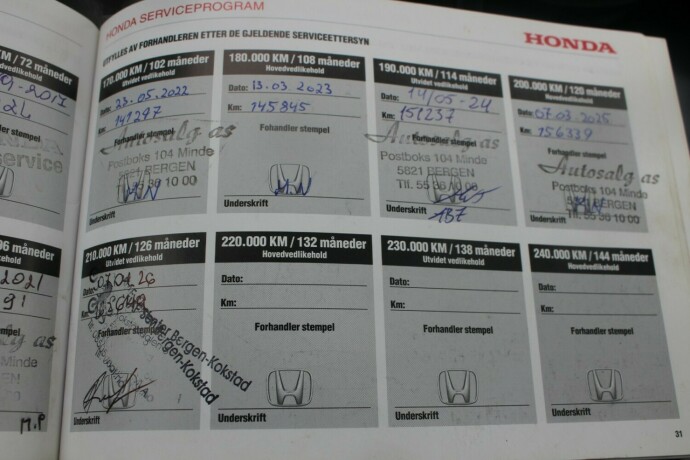 HONDA SERVICEPROGRAM
UTFYLLES AV FORHANDLEREN ETTER DE GJELDENDE SERVICEETTERSYN
HONDA
/ 72 måneder
vedlikehold
stempel
service
96 måneder
vedlikehold
2021
stempel
as
Minde
EN
00
M.P
170.000 KM / 102 måneder
Utvidet vedlikehold
Dato: 23.05.2022
Km: 141297
Forhandler stempel
Autosalg as
Postboks 104 Minde
5821 BERGEN
Tlf. 55 36 10 00
MN
Underskrift
180.000 KM / 108 måneder
Hovedvedlikehold
Dato: 13.03.2023
Km: 145845
Forhandler stempel
MN
Underskrift
190.000 KM / 114 måneder
Utvidet vedlikehold
Dato: 14/05-24
Km: 151237
Forhandler stempel
Autosalg as
Postboks 104 Minde
5821 BERGEN
Tlf. 55 36 10 00
Underskrift
200.000 KM / 120 måneder
Hovedvedlikehold
Dato: 07.03.2025
Km: 156339
Forhandler stempel
Autosalg as
Postboks 104 Minde
5821 BERGEN
Tlf. 55 36 10 00
MN
Underskrift
210.000 KM / 126 måneder
Utvidet vedlikehold
Dato:
Km:
Forhandler stempel
Bergen-Kokstad
Bergen-Kokstad
Underskrift
220.000 KM / 132 måneder
Hovedvedlikehold
Dato:
Km:
Forhandler stempel
Underskrift
230.000 KM / 138 måneder
Utvidet vedlikehold
Dato:
Km:
Forhandler stempel
Underskrift
240.000 KM / 144 måneder
Hovedvedlikehold
Dato:
Km:
Forhandler stempel
Underskrift
31